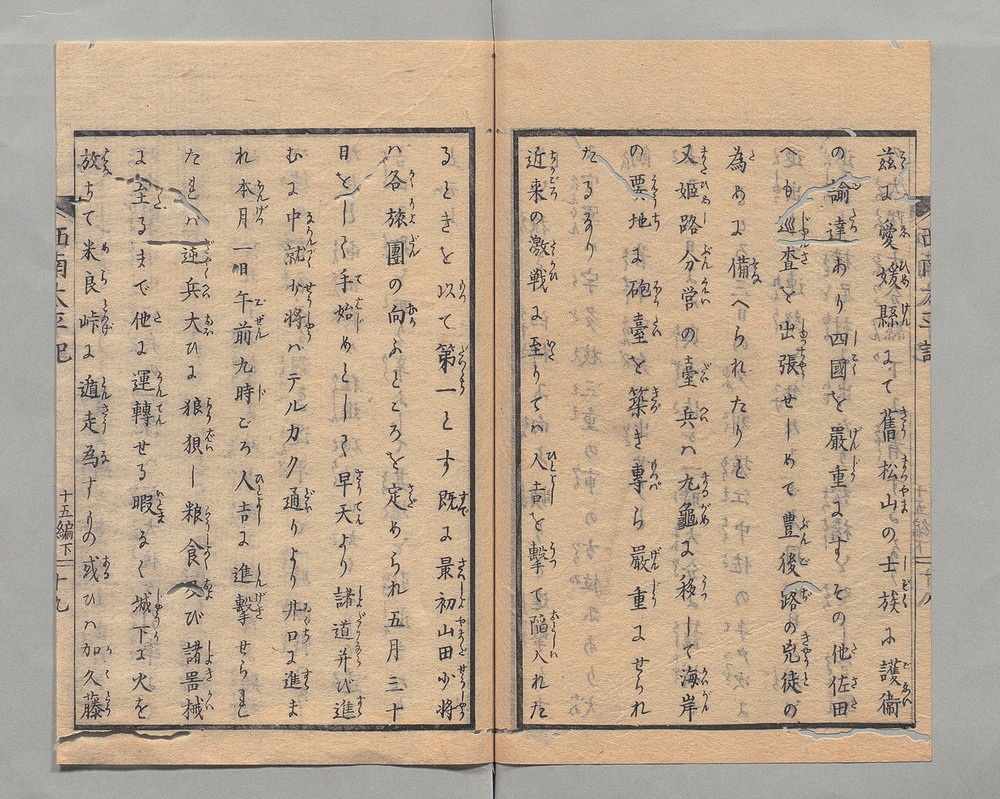 茲に愛媛縣にて舊松山の士族に護衛
の諭達あり四國を嚴重にすその他佐田
へか巡査を出張せしめて豊後路の兇徒の
為めに備へられたりと
又姫路分営の臺兵ハ丸龜に移して海岸
の要地に砲臺を築き專ら嚴重にせられ
たるなり
近来の激戦に至りてハ人吉を撃て陥入れた
るときを以て第一とす既に最初山田少将
ハ各旅團の向ふところを定められ五月三十
日をして手始めとして早天より諸道并び進
むに中就少将ハテルカク通りより井口に進ま
れ本月一日午前九時ごろ人吉に進撃せられし
たれハ逆兵大ひに狼狽し粮食及び諸器械
に至るまで他に運轉せる暇なく城下に火を
放ちて米良峠に遁走為すもの或ひハ加久藤
西南太平記
十五編下
十九